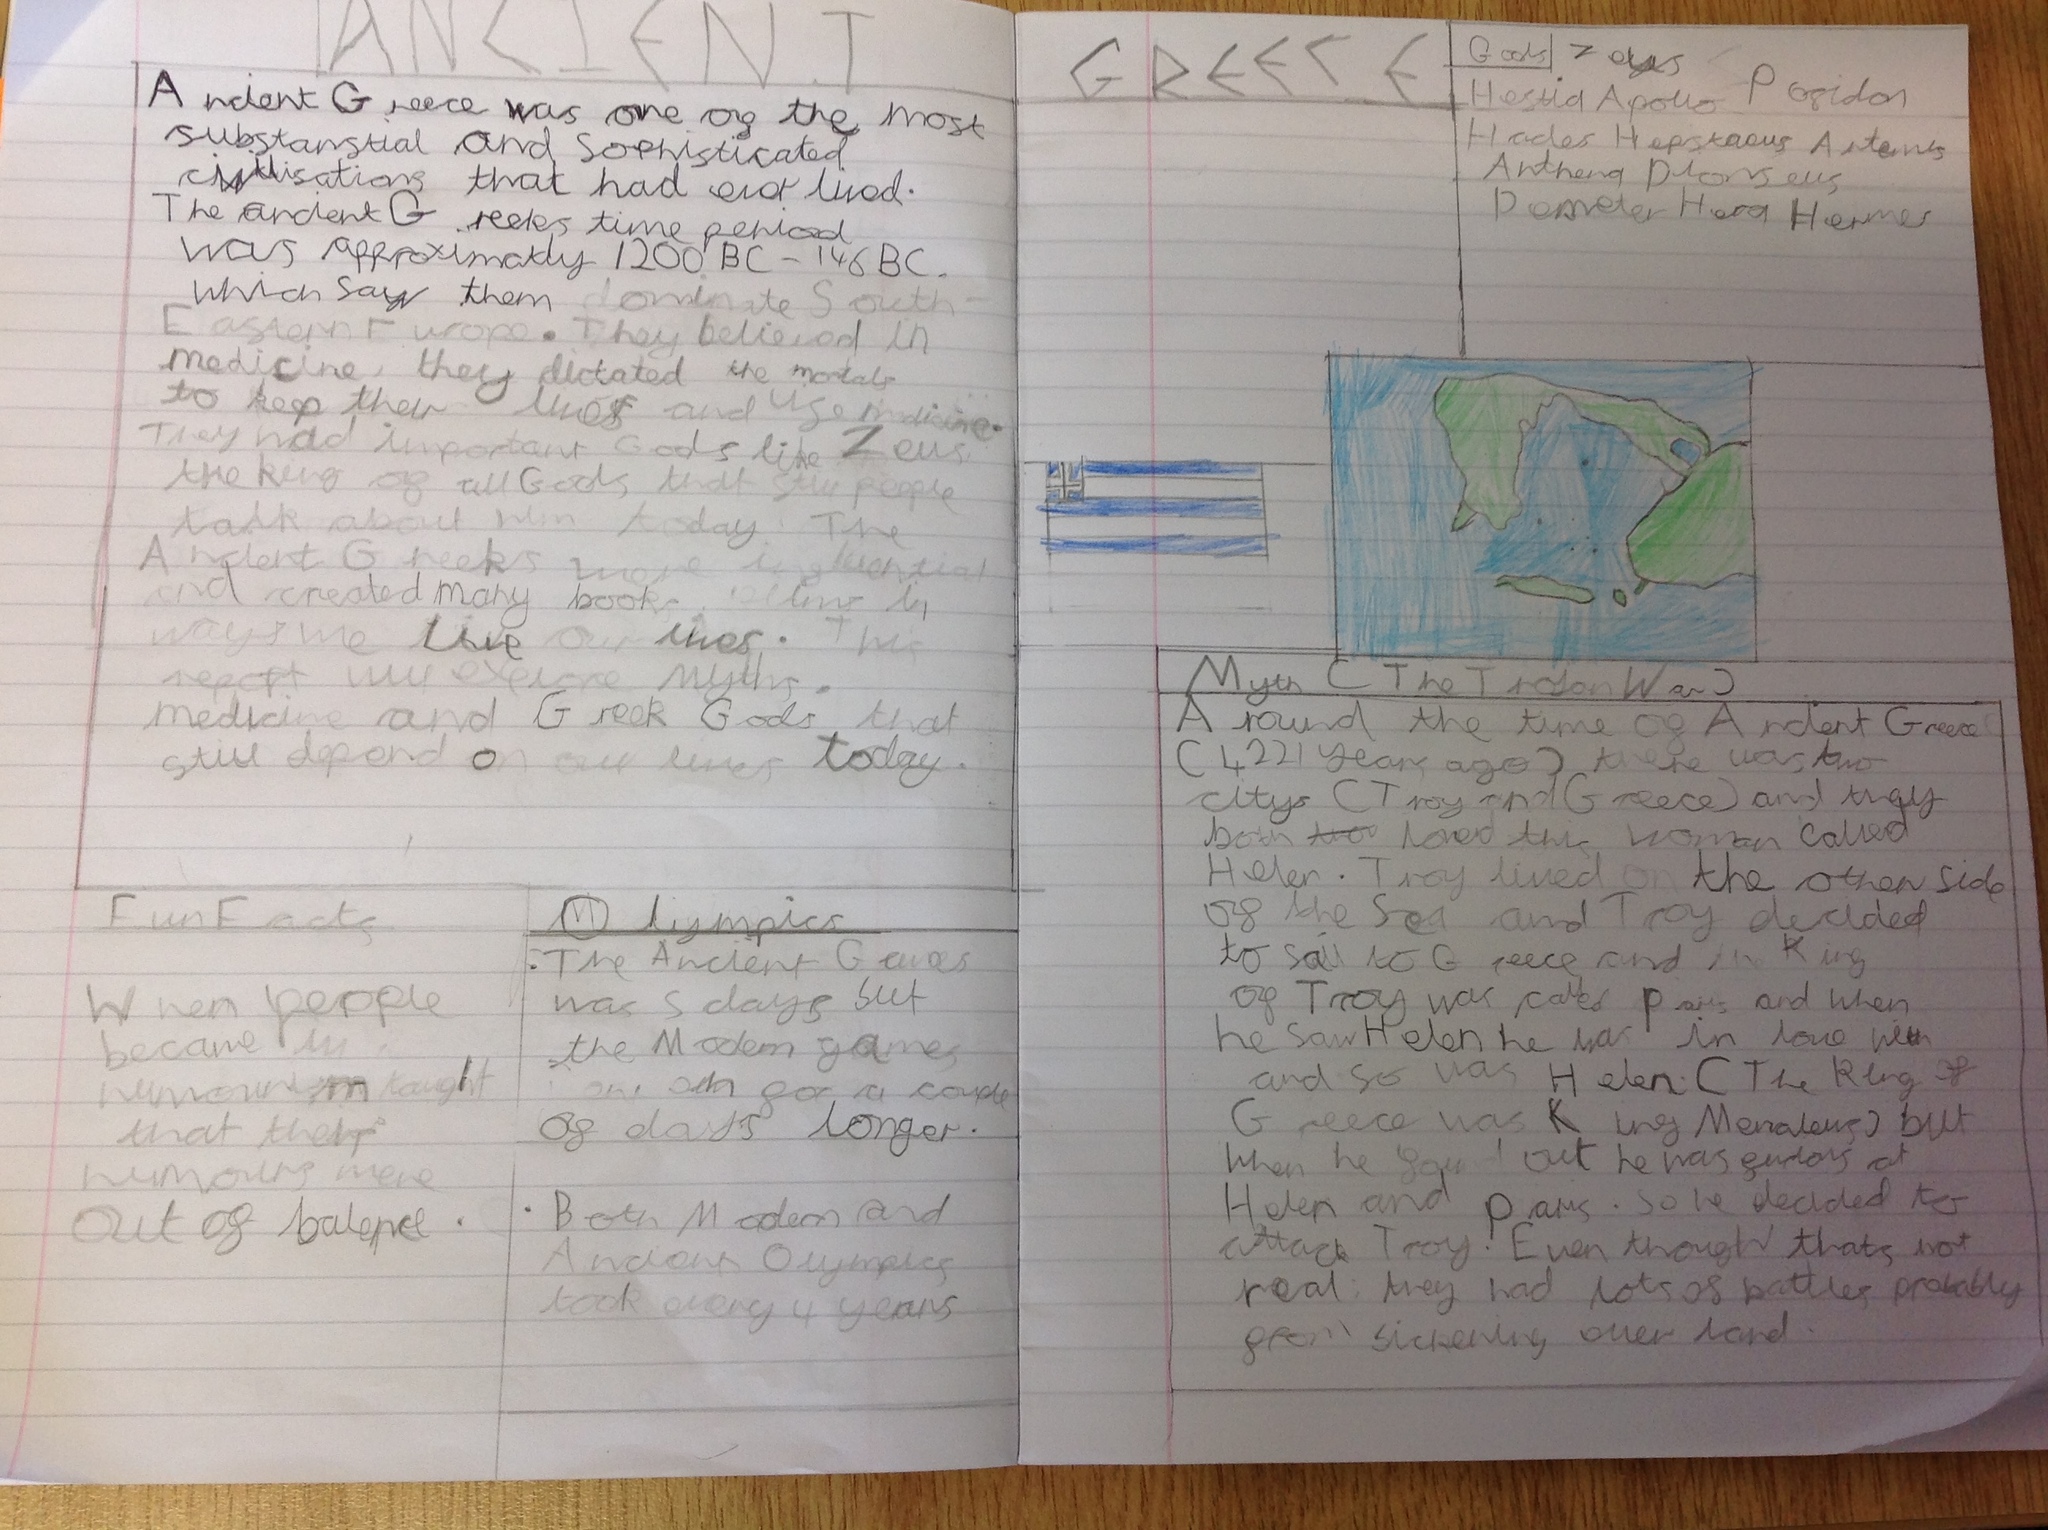 ANCIENT
Ancient Greece was one of the most
substanstial and sophisticated
civilisations that had evor lived.
The ancient Greeks time period
was approximatly 1200 BC - 146 BC.
which saw them dominate South-
Eastern Europe. They believed in
medicine, they dictated the mortals
to keep their lives and use medicine.
They had important Gods like Zeus
the king of all Gods that still people
talk about him today. The
Ancient Greeks were influential
and created many books, in
ways we live our lives. This
report will explore Myths,
medicine and Greek Gods that
still depend on our lives today.
Fun Facts
When people
became ill
humourism taught
that their
humours were
out of balence.
Olympics
• The Ancient Games
was 5 days but
the Modern games
for a couple
of days longer.
• Both Modern and
Ancient Olympics
took every 4 years
GREECE
Gods Zeus
Hestia Apollo Posidon
Hades Hepstaeus Artemis
Anthena Dionseus
Demeter Hera Hermes
Myth (The Trojan War)
Around the time of Ancient Greece
(4221 years ago) there was two
citys (Troy and Greece) and they
both loved this woman called
Helen. Troy lived on the other side
of the Sea and Troy decided
to sail to Greece and the King
of Troy was called Paris and when
he saw Helen he was in love with
and so was Helen. (The King of
Greece was King Menaleus) but
when he found out he was furious at
Helen and Paris. So he decided to
attack Troy. Even though thats not
real; they had lots of battles probably
from sickening over land.